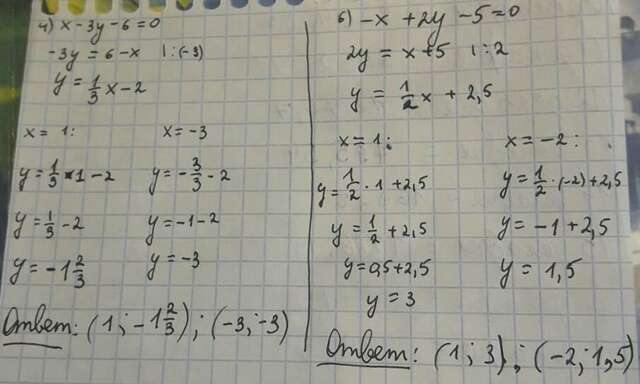 4) x - 3y - 6 = 0
-3y = 6 - x |:(-3)
y = 1/3 x - 2
x = 1:
y = 1/3 * 1 - 2
y = 1/3 - 2
y = -1 2/3
x = -3
y = -3/3 - 2
y = -1 - 2
y = -3
Ответ: (1; -1 2/3); (-3; -3)
6) -x + 2y - 5 = 0
2y = x + 5 |:2
y = 1/2 x + 2,5
x = 1:
y = 1/2 · 1 + 2,5
y = 1/2 + 2,5
y = 0,5 + 2,5
y = 3
x = -2:
y = 1/2 · (-2) + 2,5
y = -1 + 2,5
y = 1,5
Ответ: (1; 3); (-2; 1,5)